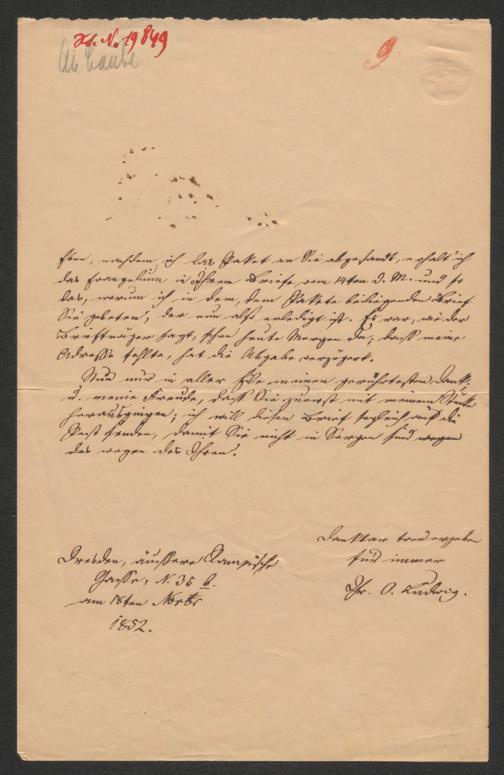 H. I. N. 19849
An Laube
9.
Eben, nachdem ich das Paket an Sie abgesandt, erhalt' ich
das Evangelium in Ihrem Briefe vom 14ten d. M. und so
das, warum ich in dem, dem Pakete beiliegenden Brief
Sie gebeten, der nun also erledigt ist. Es war, wie der
Briefträger sagt, schon heute Morgen da; daß meine
Adresse fehlte, hat die Abgabe verzögert.
Nun nur in aller Eile meinen gerührtesten Dank,
u. meine Freude, daß Sie zuerst mit meinem Stücke
herausgingen; ich will diesen Brief sogleich auf die
Post senden, damit Sie nicht in Sorgen sind wegen
des wegen des Ihren.
Dankbar treu ergeben
für immer
Ihr O. Ludwig.
Dresden, äussere Rampische
Gasse, N. 35 b.
am 18ten Novbr
1852.